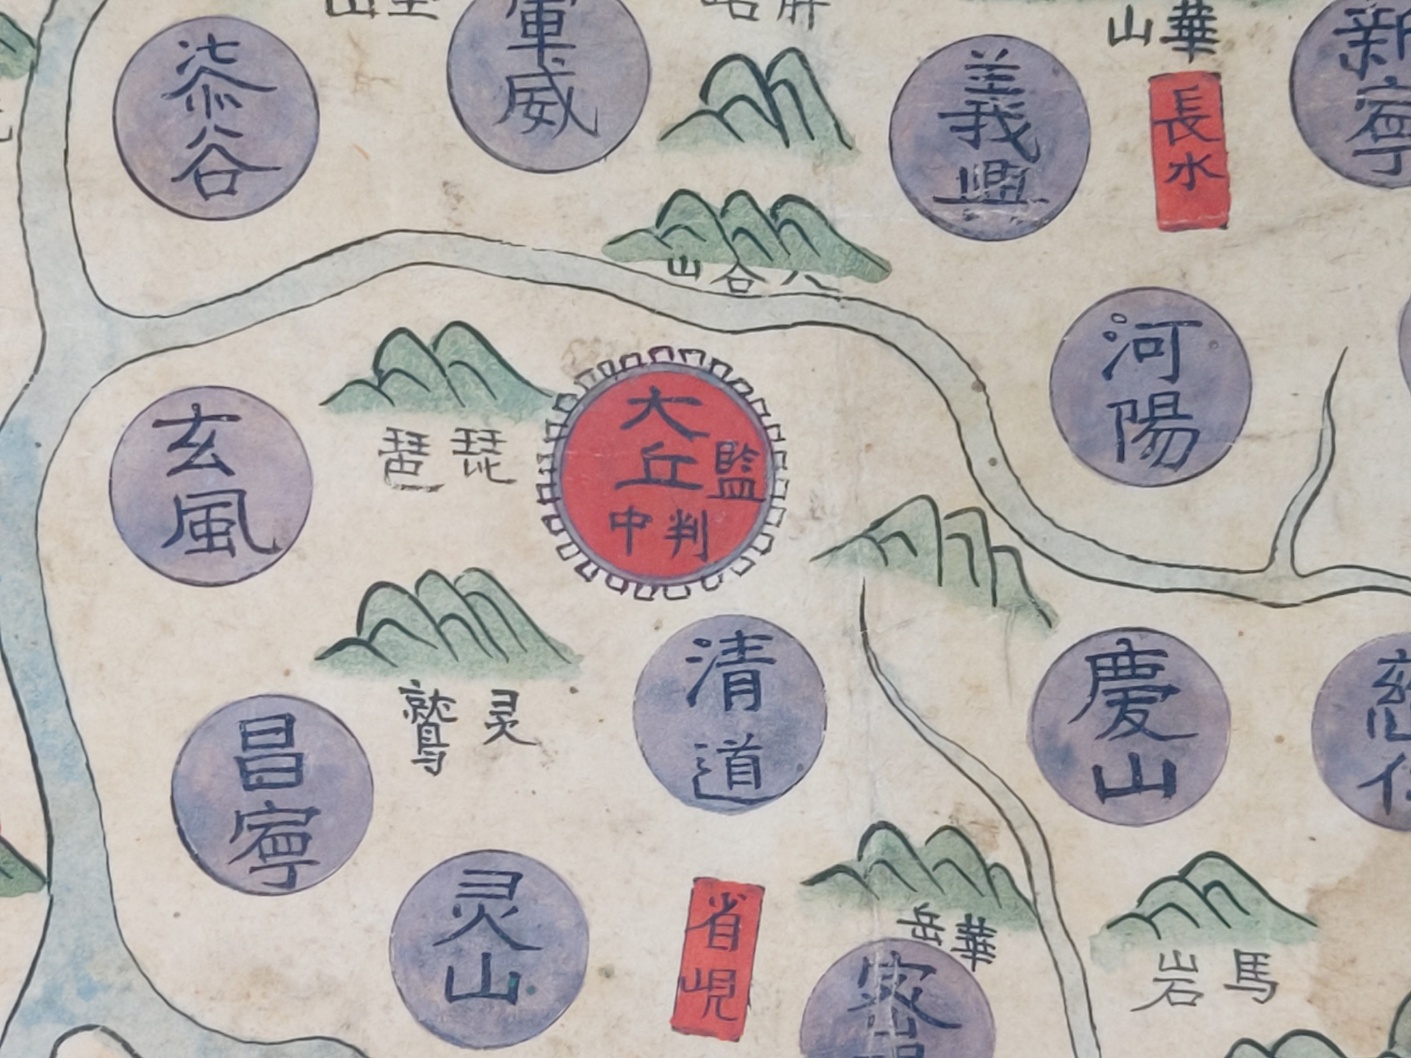 華山
漆谷
軍威
義興
長水
新寧
八谷山
河陽
玄風
琵琶
大丘
監
判
中
清道
慶山
灵鷲
昌寧
灵山
省峴
華岳
馬岩
密
慈仁